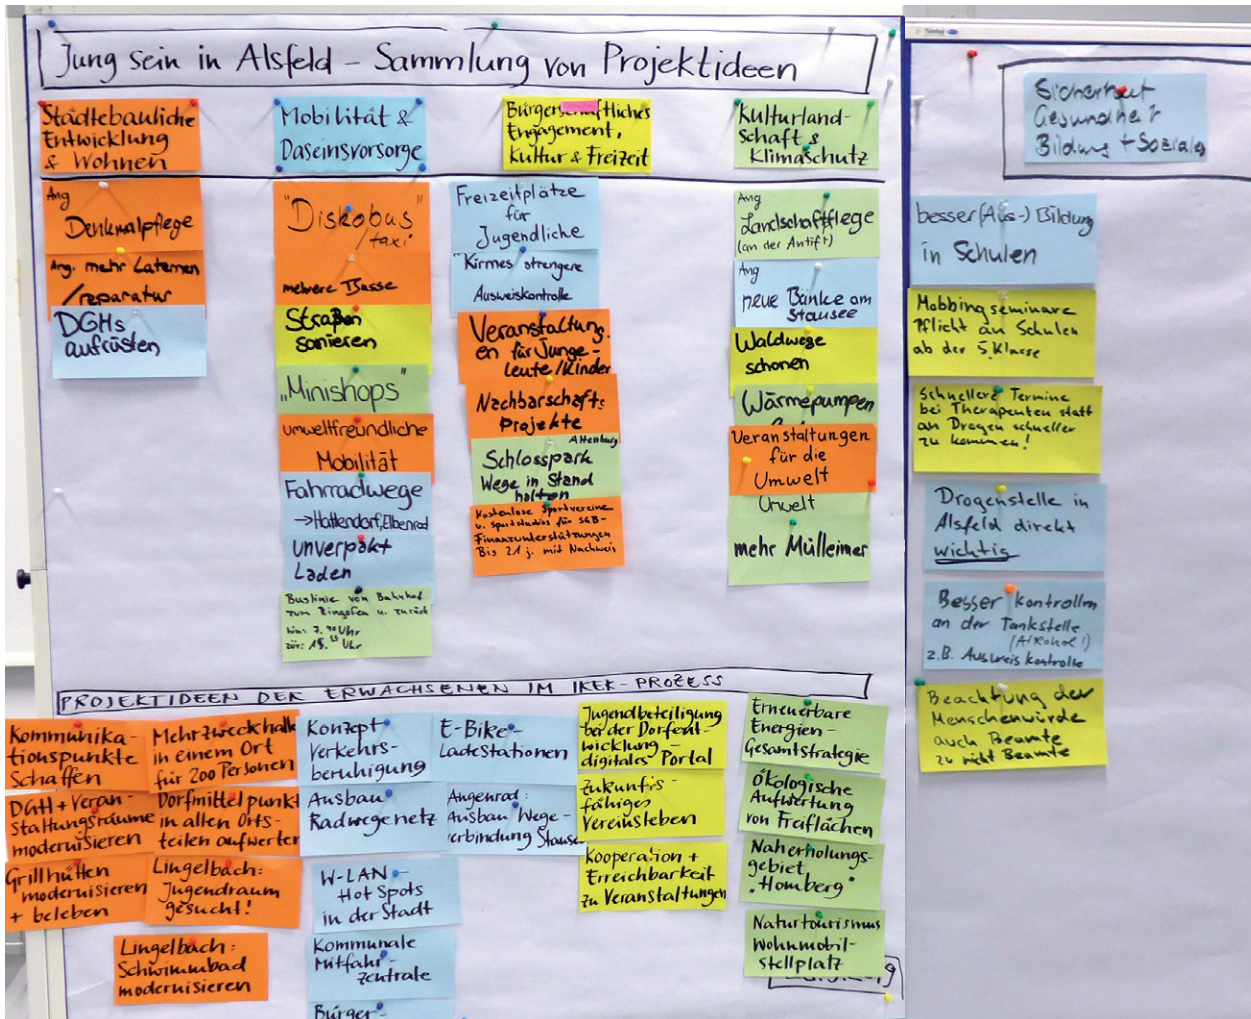 Jung sein in Alsfeld – Sammlung von Projektideen
Städtebauliche
Entwicklung
& Wohnen
Ang
Denkmalpflege
Ang. mehr Laternen
/reparatur
DGHs
aufrüsten
Mobilität &
Daseinsvorsorge
"Diskobus"
/taxi
mehrere Busse
Straßen
sanieren
„Minishops"
umweltfreundliche
Mobilität
Fahrradwege
→Hattendorf, Elbenrod
unverpakt
Laden
Buslinie von Bahnhof
zum Ringofen u. zurück
hin: 7.40 Uhr
zür: 15. Uhr
Bürgerschaftliches
Engagement,
Kultur & Freizeit
Freizeitplätze
für
Jugendliche
"Kirmes strengere
Ausweiskontrolle
Veranstaltung.
en für Junge-
leute/Kinder
Nachbarschafts
projekte
Altenburg
Schlosspark
Wege in Stand
halten
Kostenlose Sportvereine
u. Sportstudios für SGB-
Finanzunterstützungen
Bis 21 j. mit Nachweis
Kulturland-
schaft &
Klimaschutz
Ang
Landschaftflege
(an der Antift)
Ang
neue Bänke am
Stausee
Waldwege
schonen
Wärmepumpen
Veranstaltungen
für die
Umwelt
Umwelt
mehr Mülleimer
Sicherheit
Gesundheit
Bildung + Soziales
besser (Aus-) Bildung
in Schulen
Mobbingseminare
Pflicht an Schulen
ab der 5. Klasse
Schnellere Termine
bei Therapeuten statt
an Drogen schneller
zu kommen!
Drogenstelle in
Alsfeld direkt
wichtig
Besser kontrollen
an der Tankstelle
(Alkohol!)
z.B. Ausweis kontrolle
Beachtung der
Menschenwürde
auch Beamte
zu nicht Beamte
PROJEKTIDEEN DER ERWACHSENEN IM IKEK-PROZESS
Kommunika-
tionspunkte
Schaffen
DGH + Veran-
staltungsräume
modernisieren
Grillhütten
modernisieren
+ beleben
Mehrzweckhalle
in einem Ort
für 200 Personen
Dorfmittelpunkt
in allen Orts-
teilen aufwerten
Lingelbach:
Jugendraum
gesucht!
Lingelbach:
Schwimmbad
modernisieren
Konzept
Verkehrs-
beruhigung
Ausbau
Radwegenetz
W-LAN-
Hot Spots
in der Stadt
Kommunale
Mitfahr-
zentrale
Bürger-
E-Bike-
Ladestationen
Angenrod:
Ausbau Wege-
verbindung Stausee
Jugendbeteiligung
bei der Dorfent-
wicklung –
digitales Portal
Zukunfts-
fähiges
Vereinsleben
Kooperation +
Erreichbarkeit
zu Veranstaltungen
Erneuerbare
Energien-
Gesamtstrategie
Ökologische
Aufwertung
von Freiflächen
Naherholungs-
gebiet
„Homberg"
Naturtourismus
Wohnmobil-
stellplatz